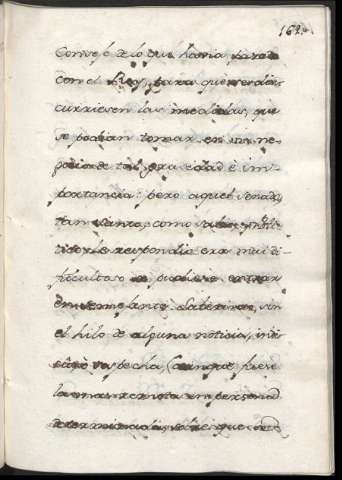 162
Consejo de lo que havia pasado
con el Rey, para que se dis
curriesen las medidas, que
se podian tomar en un ne-
gocio de tal gravedad è im
portancia: pero aquel Senado
tan santo, como
le respondio era mui di-
ficultoso se pudiese entrar
en semejante Laberinto, sin
el hilo de alguna noticia, indi
cio, ò sospecha (aunque fuese
la mas remota en persona
determinada, sobre que